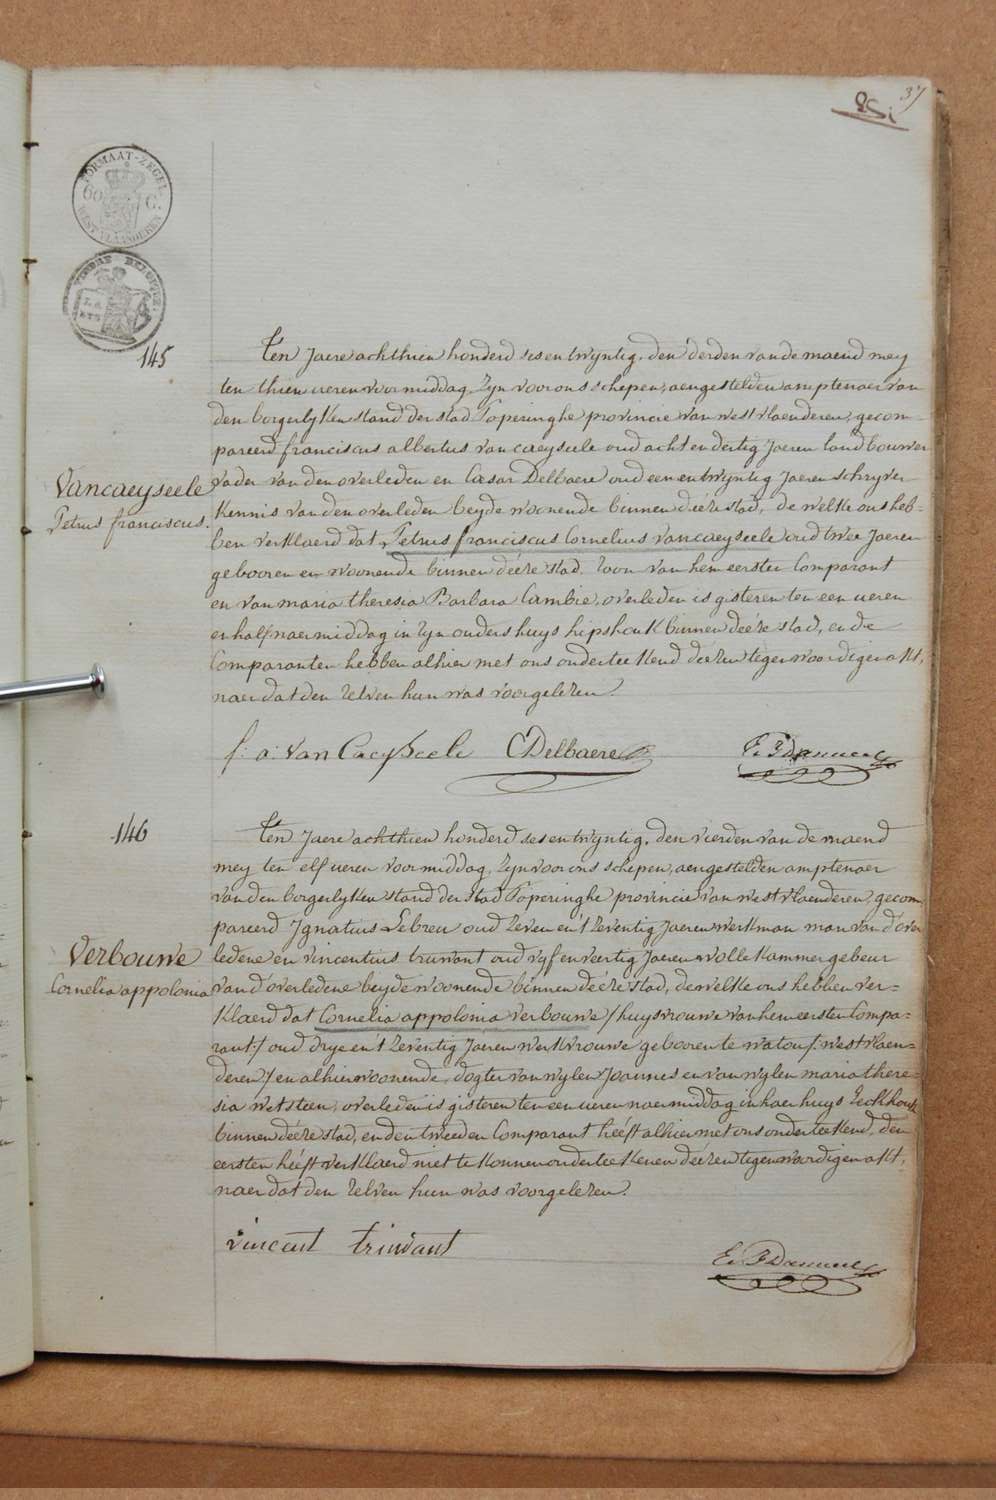 37
85
FORMAAT-ZEGEL
60 C.
WEST VLAANDEREN
TIMBRE
145
Ten Jaere achthien honderd ses en twyntig, den derden van de maend mey
ten thien ueren voormiddag, zyn voor ons schepen, aengestelden amptenaer van
den borgerlyken stand der stad Poperinghe provincie van westvlaenderen, gecom-
pareerd franciscus albertus van caeyseele oud acht en dertig Jaeren landbouwer
vader van den overleden en Cæsar Delbaere oud een en twyntig Jaeren schryver
Vancaeyseele
kennis van den overleden beyde woonende binnen deéze stad, de welke ons heb-
Petrus franciscus.
ben verklaerd dat Petrus franciscus Cornelius vancaeyseele oud twee Jaeren
gebooren en woonende binnen deéze stad, zoon van hem eersten Comparant
en van maria theresia Barbara Cambie, overleden is gisteren ten een ueren
en half naermiddag in zyn ouders huys hipshoek binnen deéze stad, en de
Comparanten hebben alhier met ons onderteekend deezen tegenwoordigen akt,
naer dat den zelven hun was voorgelezen.
f: a: Van CaeySeele CDelbaere
146
Ten Jaere achthien honderd ses en twyntig, den vierden van de maend
mey ten elf ueren voormiddag, zyn voor ons schepen, aengestelden amptenaer
van den borgerlyken stand der stad Poperinghe provincie van westvlaenderen, gecom-
pareerd Ignatius Lebreu oud zeven en 't zeventig Jaeren werkman man van d'over
Verbouwe
ledene en vincentius truwant oud vyf en veertig Jaeren wollekammer gebeur
Cornelia appolonia
van d'overledene beyde woonende binnen deéze stad, dewelke ons hebben ver-
klaerd dat Cornelia appolonia verbouwe /huysvrouwe van hem eersten Compa-
rant:/ oud drye en 't zeventig Jaeren werkvrouwe gebooren te watou /:westvlaen-
deren:/ en alhier woonende, dogter van wylen Joannes en van wylen maria there-
sia wetsteen, overleden is gisteren ten een ueren naermiddag in haer huys
binnen deéze stad, en den tweeden Comparant heeft alhier met ons onderteekend, den
eersten héeft verklaerd niet te konnen onderteekenen deézen tegenwoordigen akt,
naer dat den zelven hun was voorgelezen.
vincent truwant